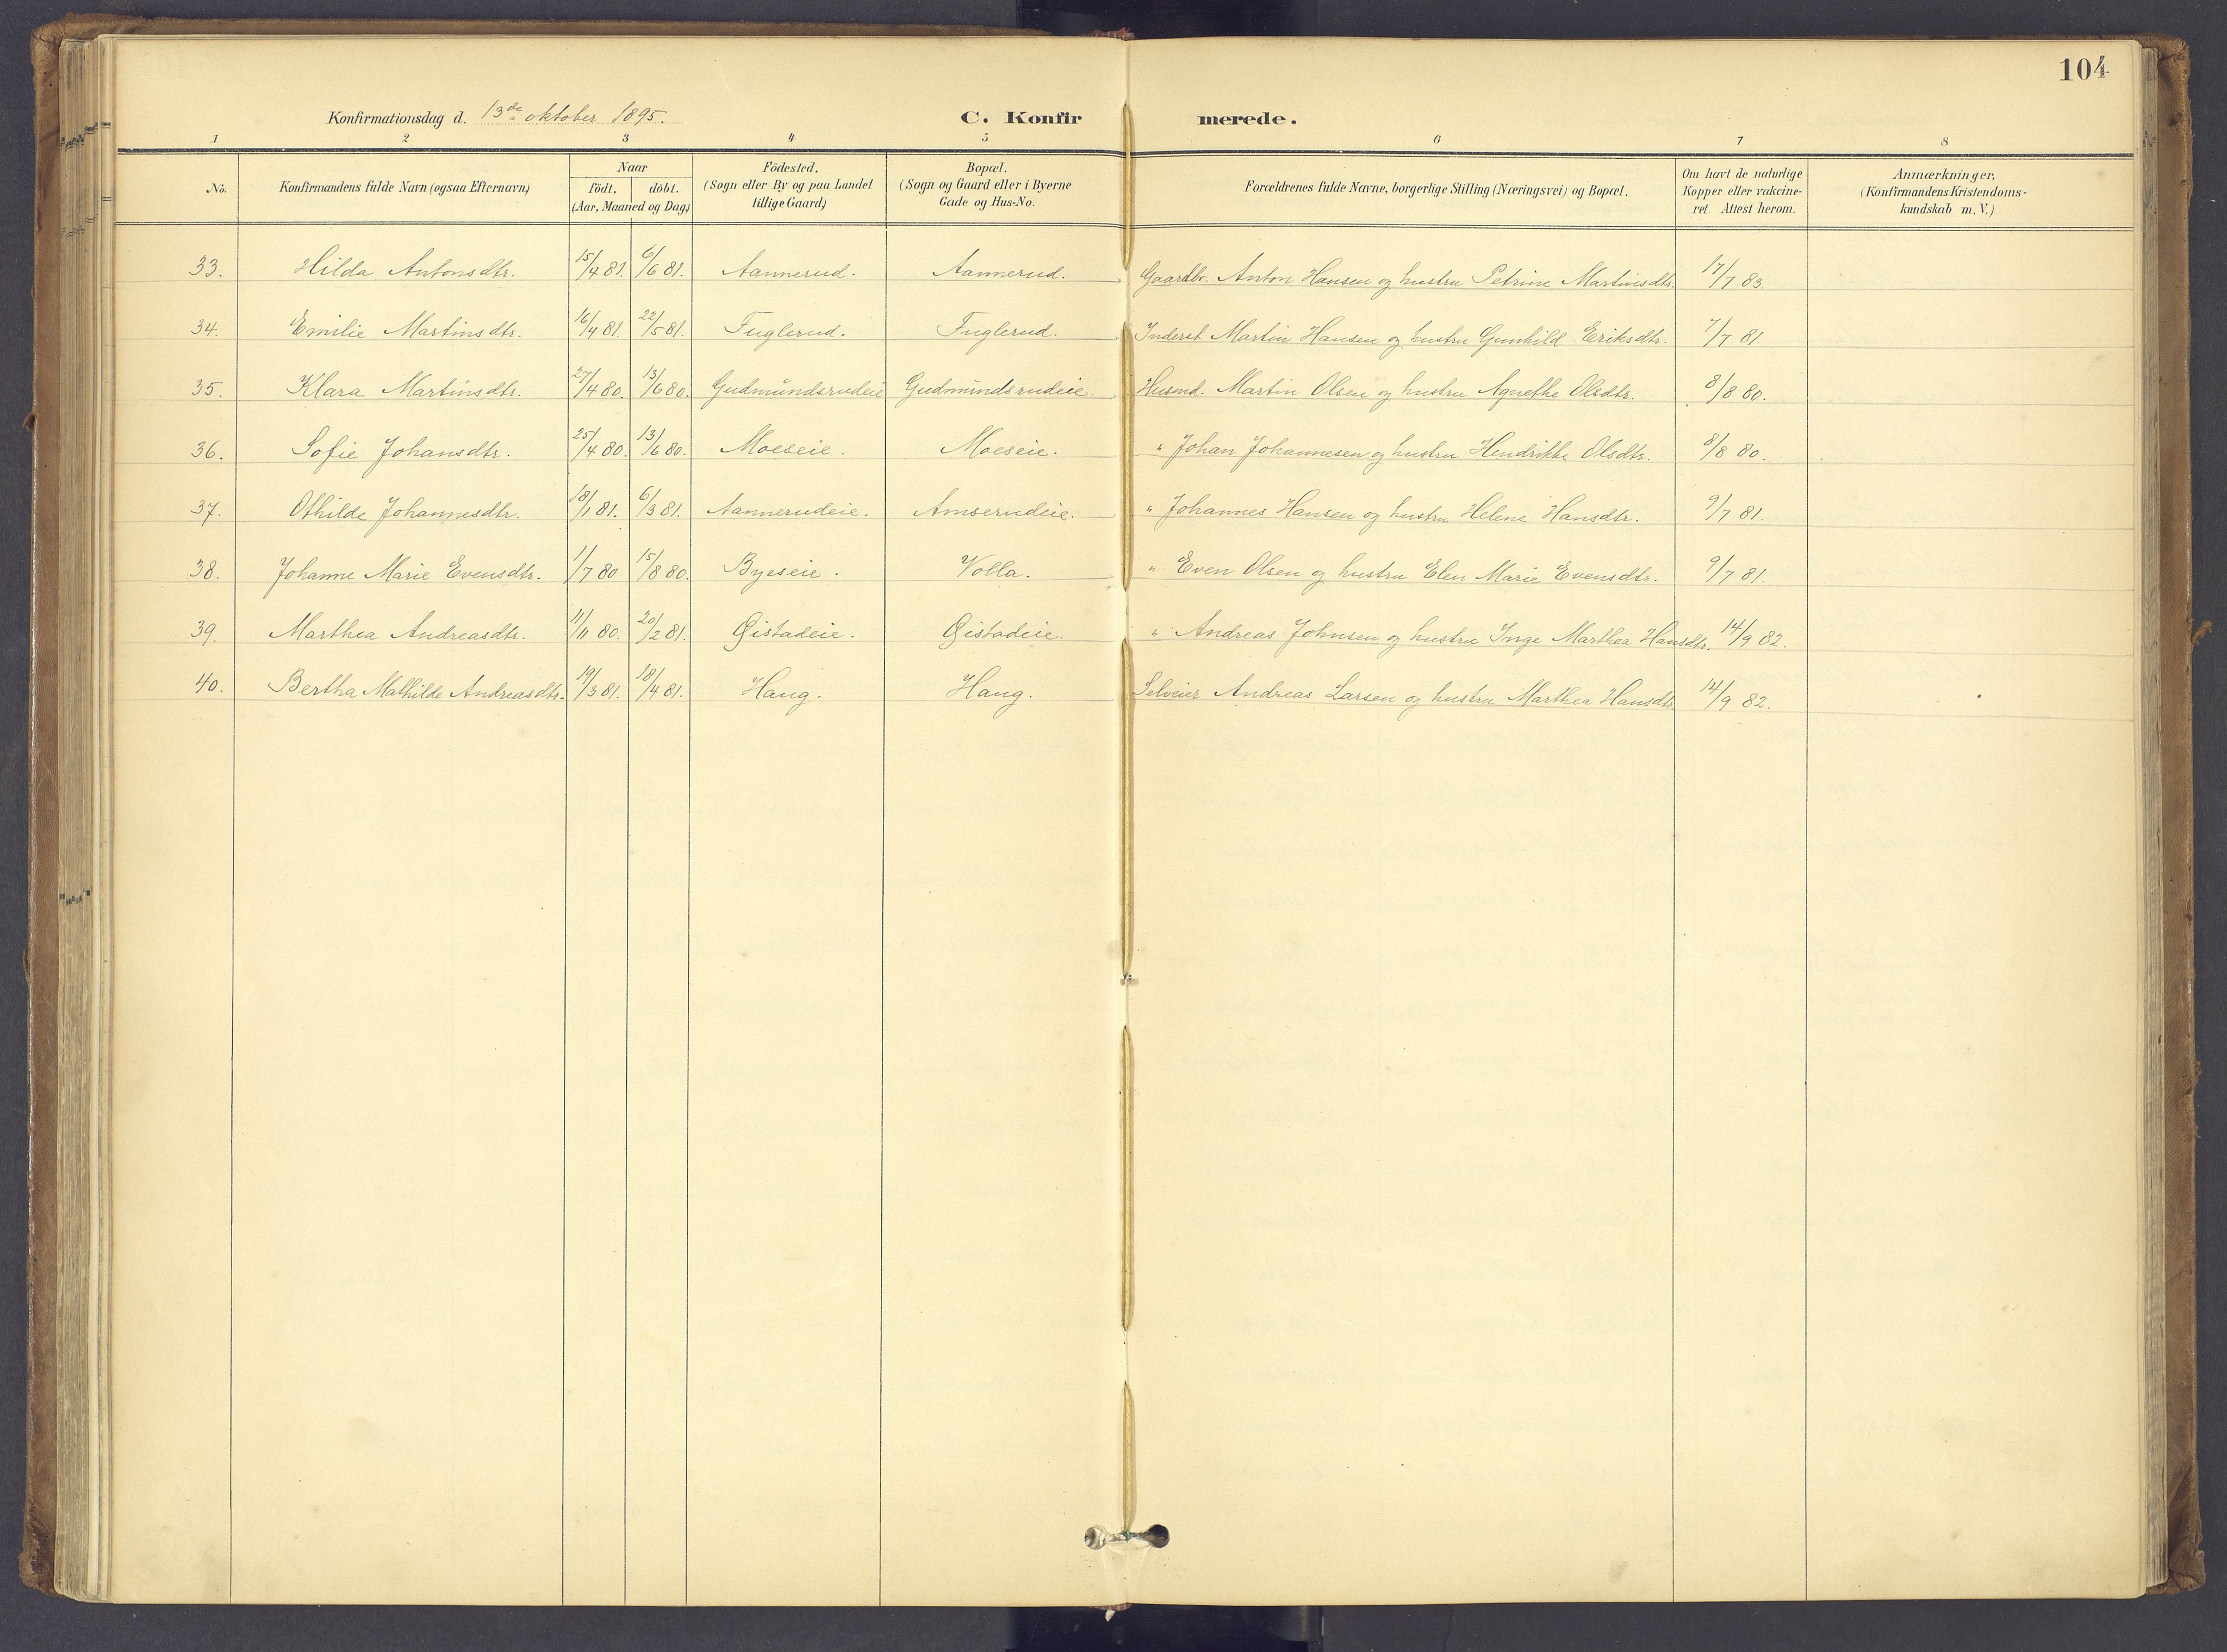 104
Konfirmationsdag d. 13de oktober 1895. C. Konfirmerede.
1 2 3 4 5 6 7 8
No. Konfirmandens fulde Navn (ogsaa Efternavn) Naar födt. döbt. (Aar, Maaned og Dag) Födested. (Sogn eller By og paa Landet tillige Gaard) Bopæl. (Sogn og Gaard eller i Byerne Gade og Hus-No. Forældrenes fulde Navne, borgerlige Stilling (Næringsvei) og Bopæl. Om havt de naturlige Kopper eller vakcineret. Attest herom. Anmærkninger, (Konfirmandens Kristendomskundskab m. V.)
33. Hilda Antonsdtr. 15/4 81. 6/6 81. Aannerud. Aannerud. Gaardbr. Anton Hansen og hustru Petrine Martinsdtr. 17/7 83.
34. Emilie Martinsdtr. 16/4 81. 22/5 81. Fuglerud. Fuglerud. Inderst Martin Hansen og hustru Gunhild Eriksdtr. 7/7 81
35. Klara Martinsdtr. 27/4 80. 13/6 80. Gudmundsrudeie Gudmundsrudeie. Husmd. Martin Olsen og hustru Agnethe Olsdtr. 8/8 80.
36. Sofie Johansdtr. 25/4 80. 13/6 80. Moeseie. Moeseie. " Johan Johannesen og hustru Hendrikke Olsdtr. 8/8 80.
37. Othilde Johannesdtr. 18/1 81. 6/3 81. Aannerudeie. Amserudeie. " Johannes Hansen og hustru Helene Hansdtr. 9/7 81.
38. Johanne Marie Evensdtr. 1/7 80 15/8 80. Byeseie. Volla. " Even Olsen og hustru Elen Marie Evensdtr. 9/7 81.
39. Marthea Andreasdtr. 11/11 80. 20/2 81. Gistadeie. Gistadeie. " Andreas Johnsen og hustru Inge Marthea Hansdtr. 14/9 82.
40. Bertha Mathilde Andreasdtr. 19/3 81. 18/4 81. Haug. Haug. Selveier Andreas Larsen og hustru Marthea Hansdtr. 14/9 82.